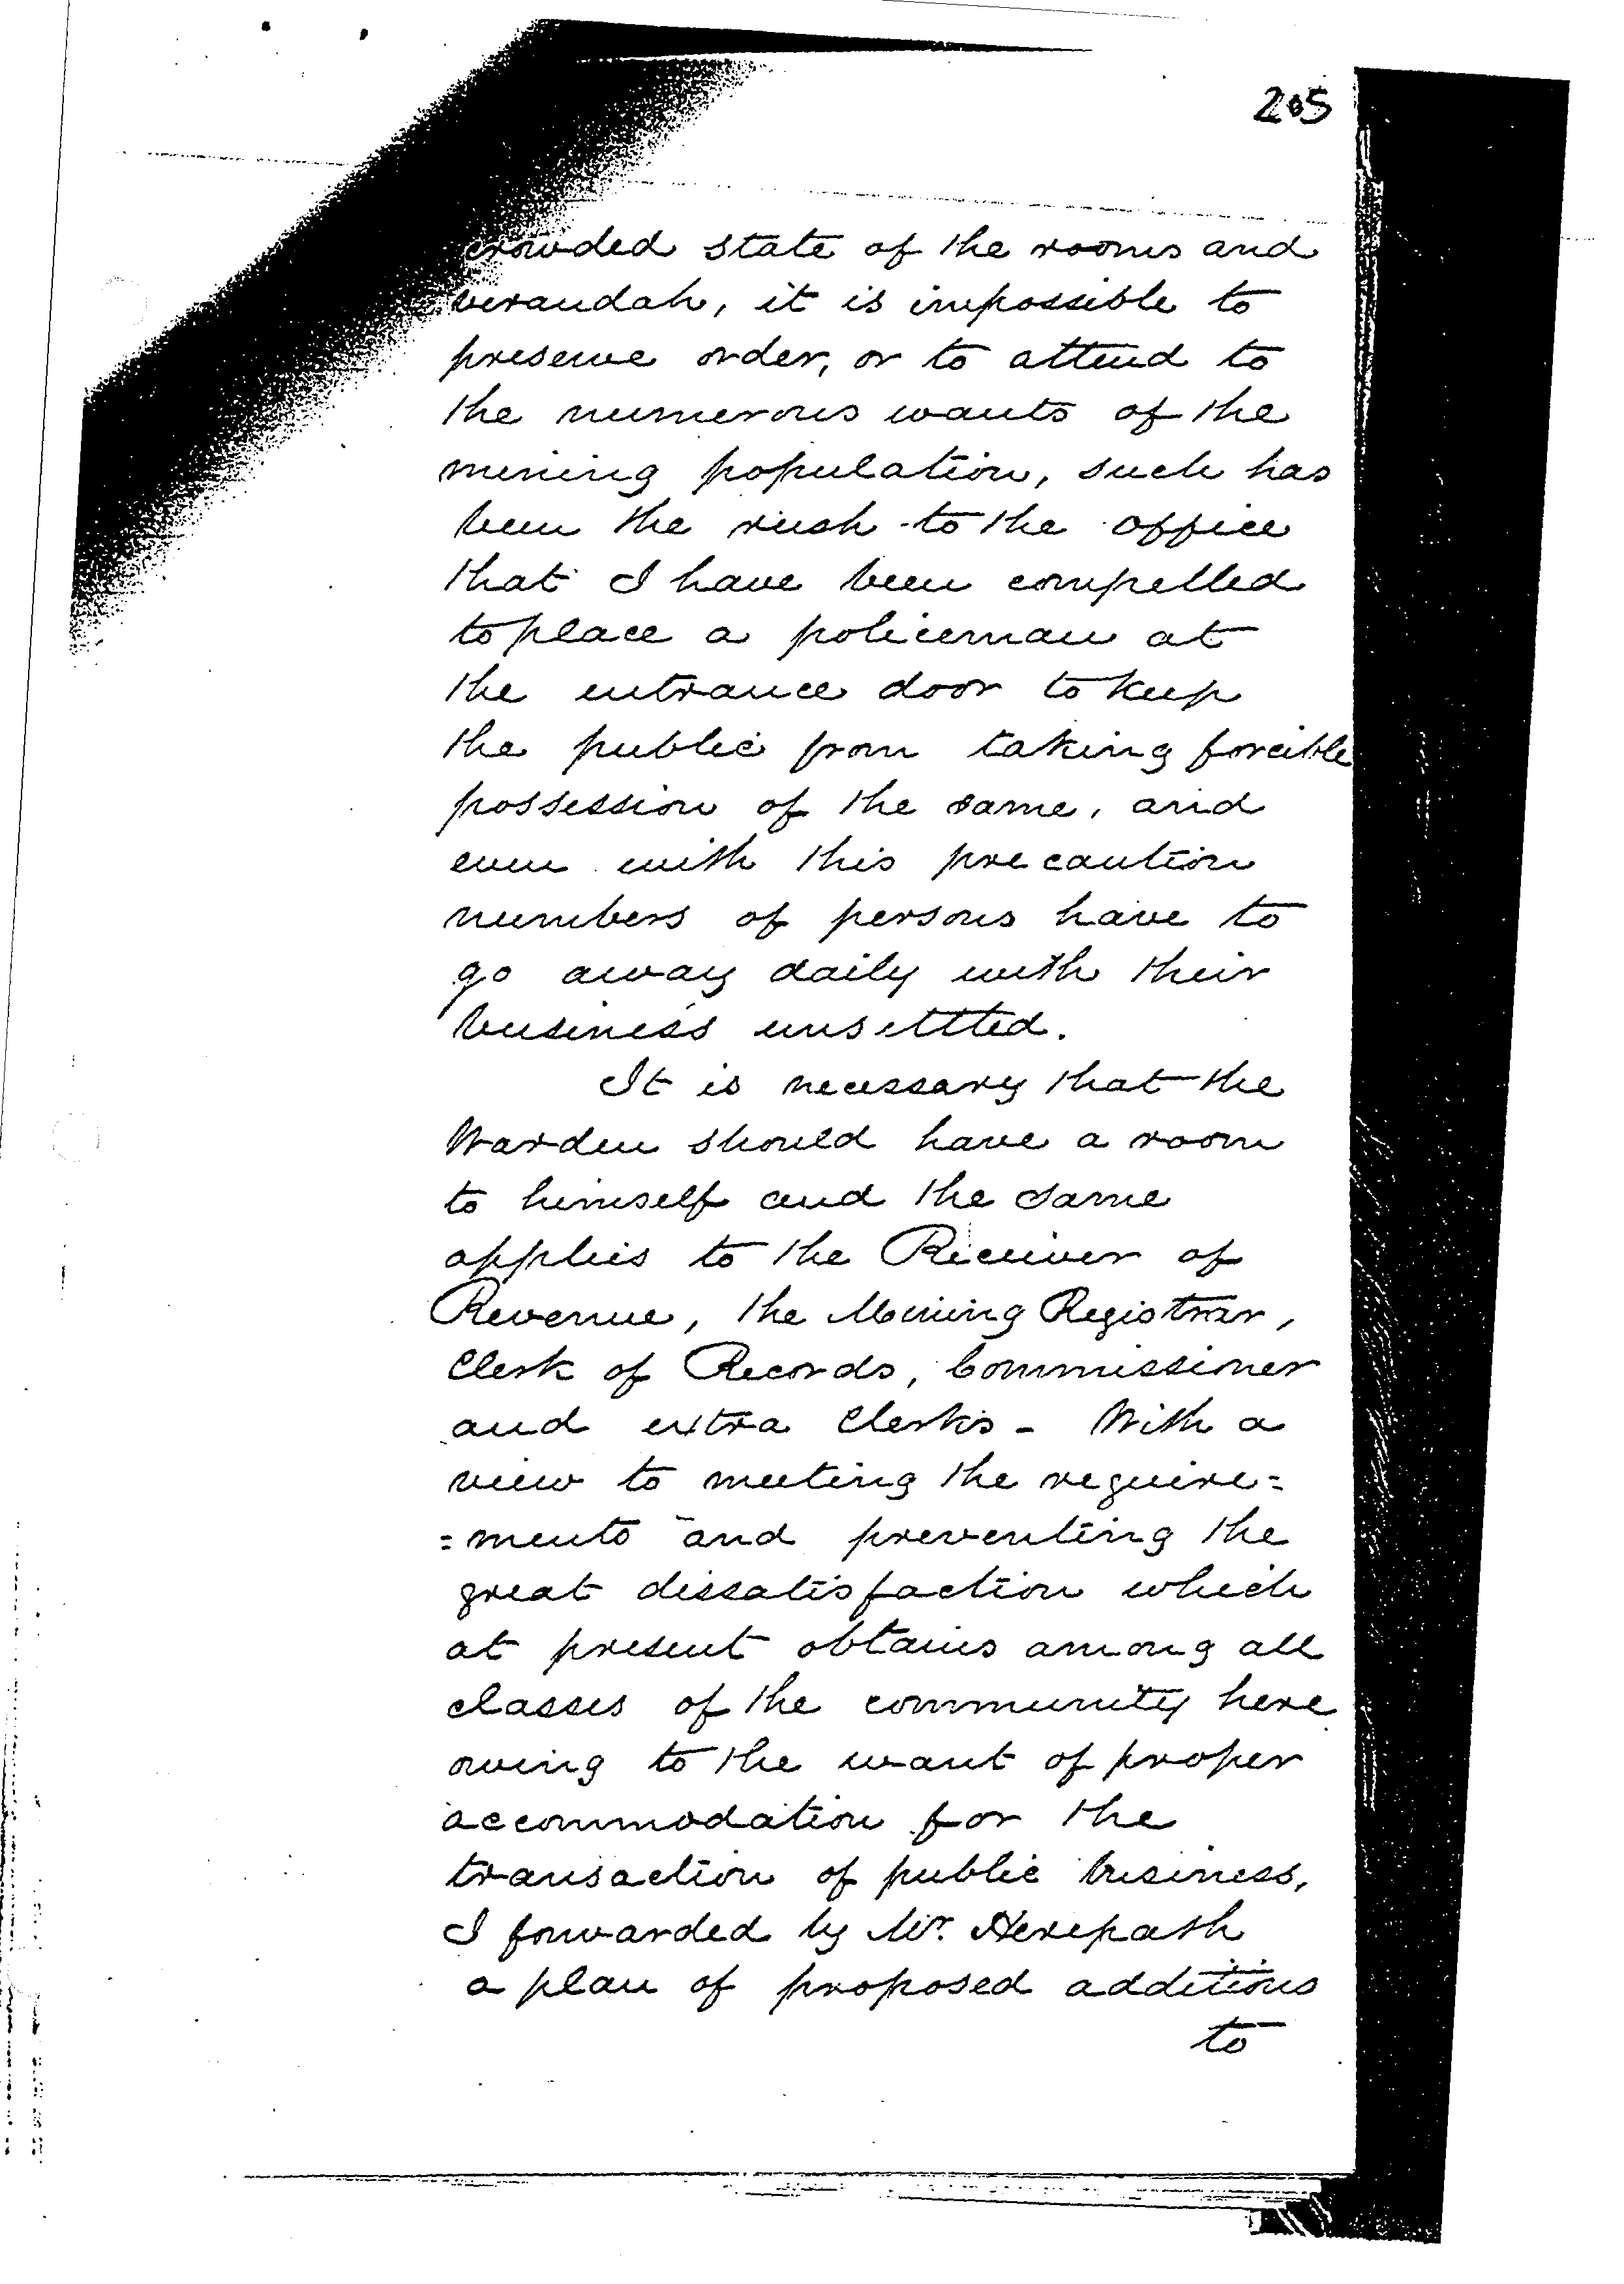 205
crowded state of the rooms and
verandah, it is impossible to
preserve order, or to attend to
the numerous wants of the
mining population, such has
been the rush to the office
that I have been compelled
to place a policeman at
the entrance door to keep
the public from taking forcible
possession of the same, and
even with this precaution
numbers of persons have to
go away daily with their
business unsettled.
It is necessary that the
Warden should have a room
to himself and the same
applies to the Receiver of
Revenue, the Mining Registrar,
Clerk of Records, Commissioner
and extra Clerks - With a
view to meeting the require=
=ments and preventing the
great dissatisfaction which
at present obtains among all
classes of the community here
owing to the want of proper
accommodation for the
transaction of public business,
I forwarded by Mr. Herepath
a plan of proposed additions
to